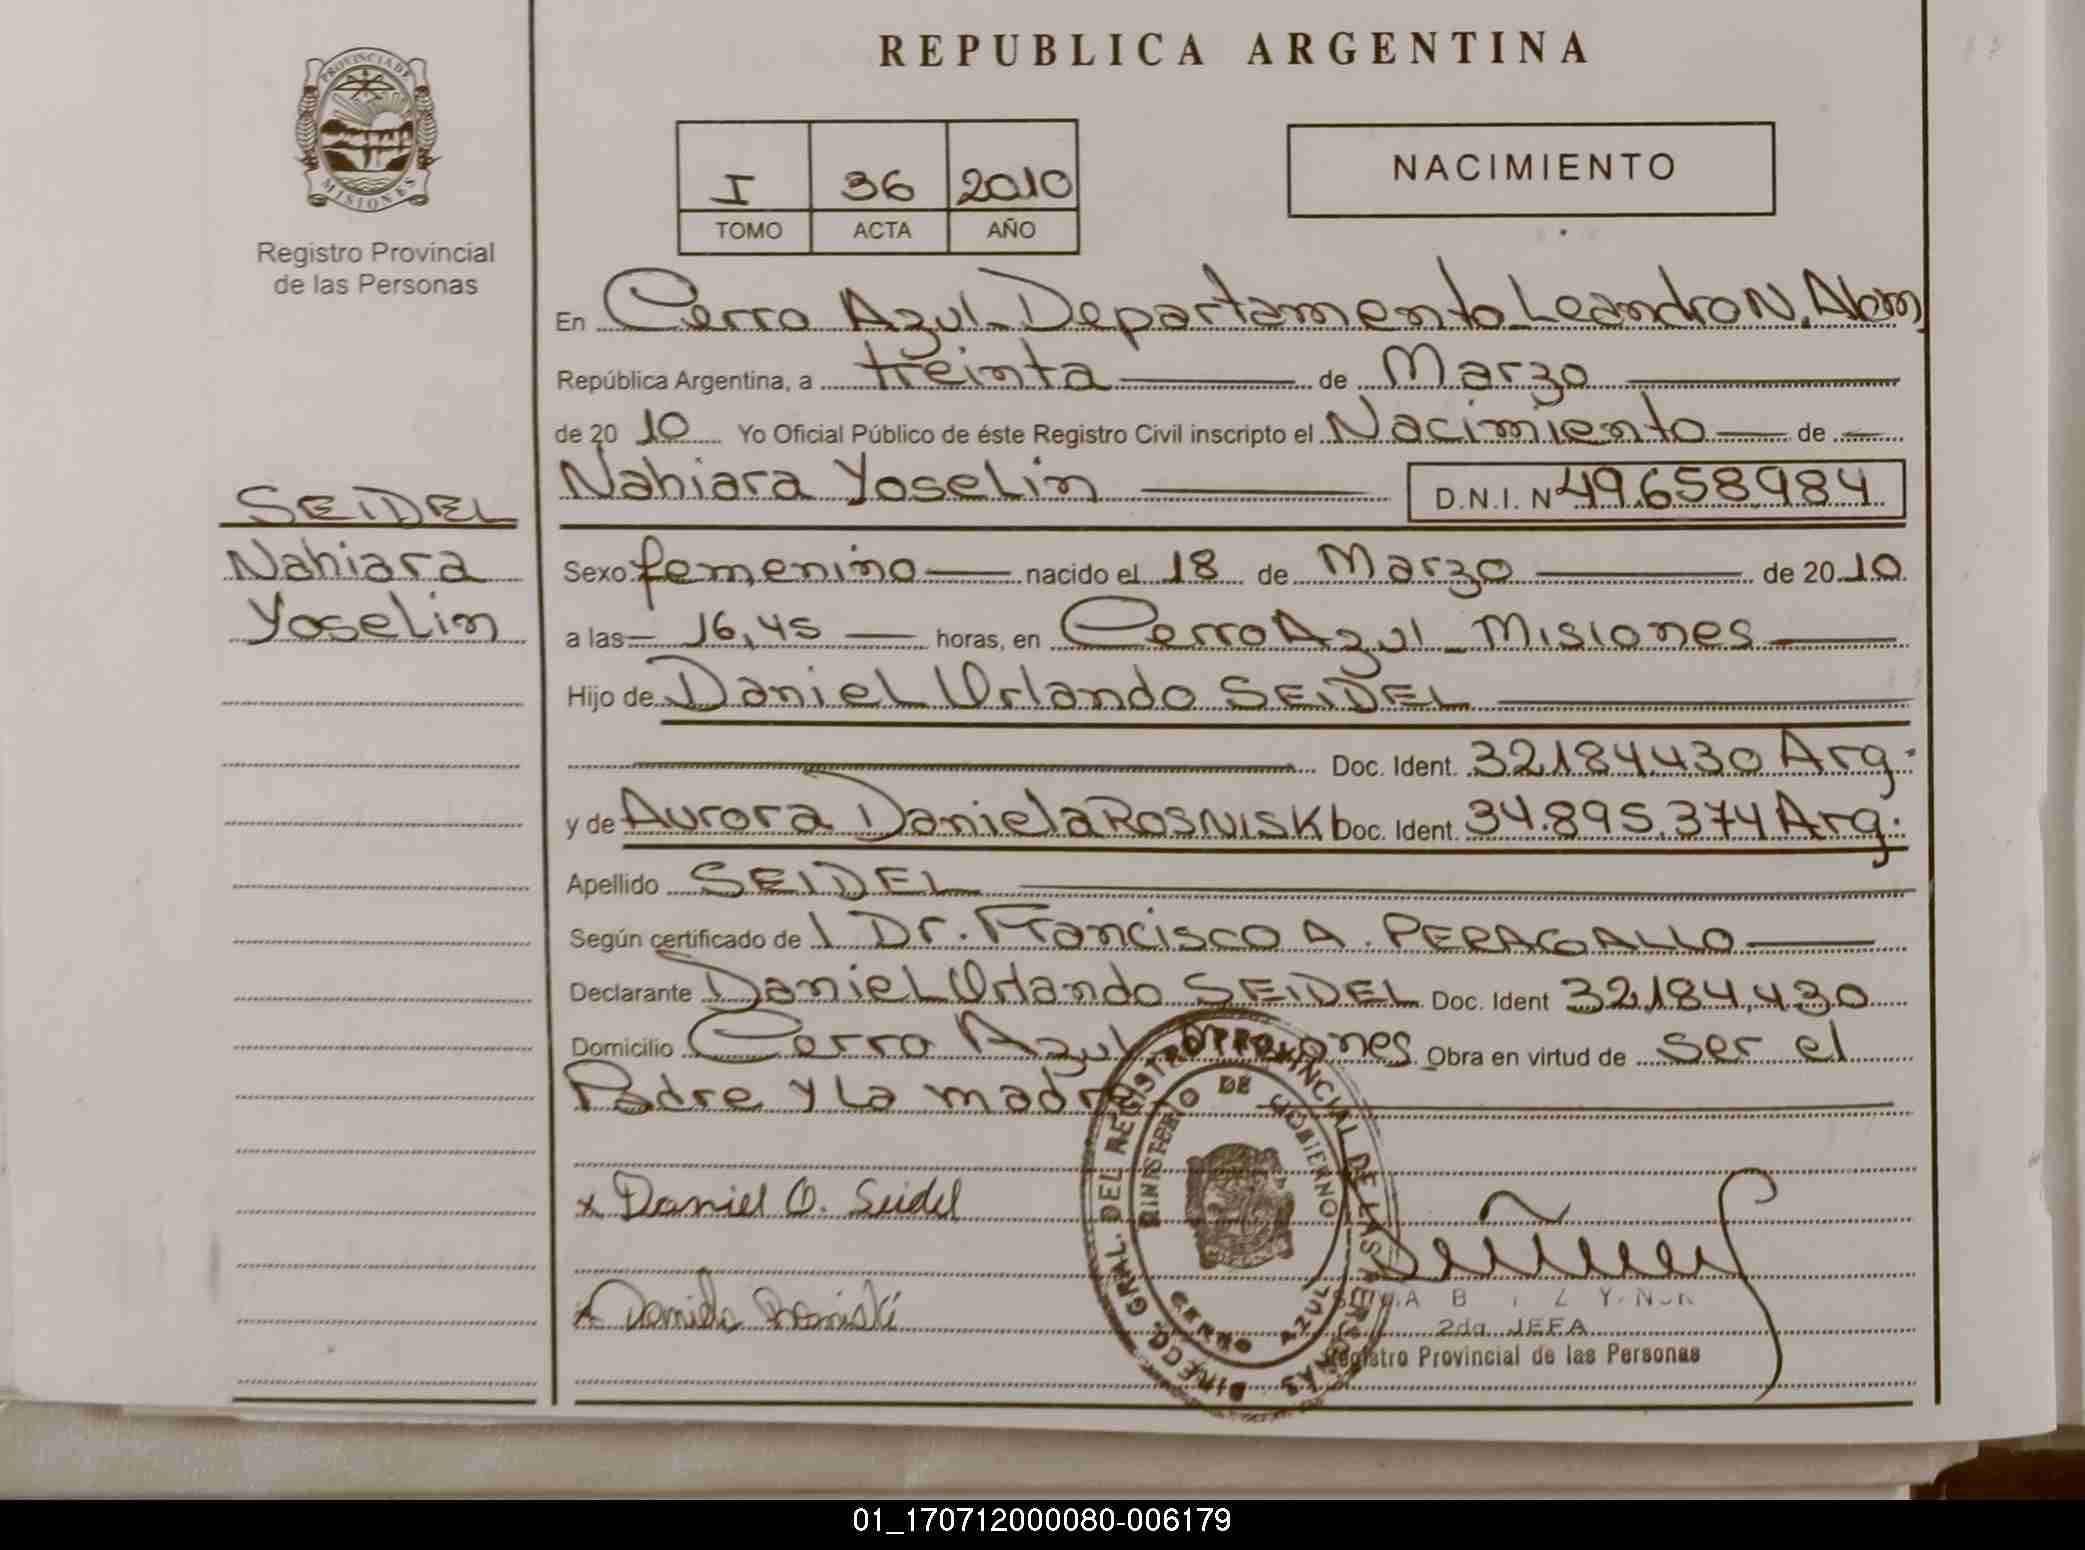 REPUBLICA ARGENTINA
PROVINCIA DE
MISIONES
Registro Provincial
de las Personas
I 36 2010
TOMO ACTA AÑO
NACIMIENTO
En Cerro Azul - Departamento Leandro N. Alem
República Argentina, a treinta de Marzo
de 2010 Yo Oficial Público de éste Registro Civil inscripto el Nacimiento de
Nahiara Yoselin D.N.I. N 49.658.984
SEIDEL
Nahiara
Yoselin
Sexo femenino nacido el 18 de Marzo de 2010
a las 16,45 horas, en Cerro Azul - Misiones
Hijo de Daniel Orlando SEIDEL
Doc. Ident. 32.184.430 Arg.
y de Aurora Daniela ROSNISKI Doc. Ident. 34.895.374 Arg.
Apellido SEIDEL
Según certificado del Dr. Francisco A. PERAGALLO
Declarante Daniel Orlando SEIDEL Doc. Ident 32.184.430
Domicilio Cerro Azul Misiones Obra en virtud de ser el
Padre y la madre
x Daniel O. Seidel
x Daniela Rosniski
DIRECC. GRAL. DEL REGISTRO PROVINCIAL DE LAS PERSONAS
MINISTERIO DE GOBIERNO
CERRO AZUL
2da. JEFA
Registro Provincial de las Personas
01_170712000080-006179